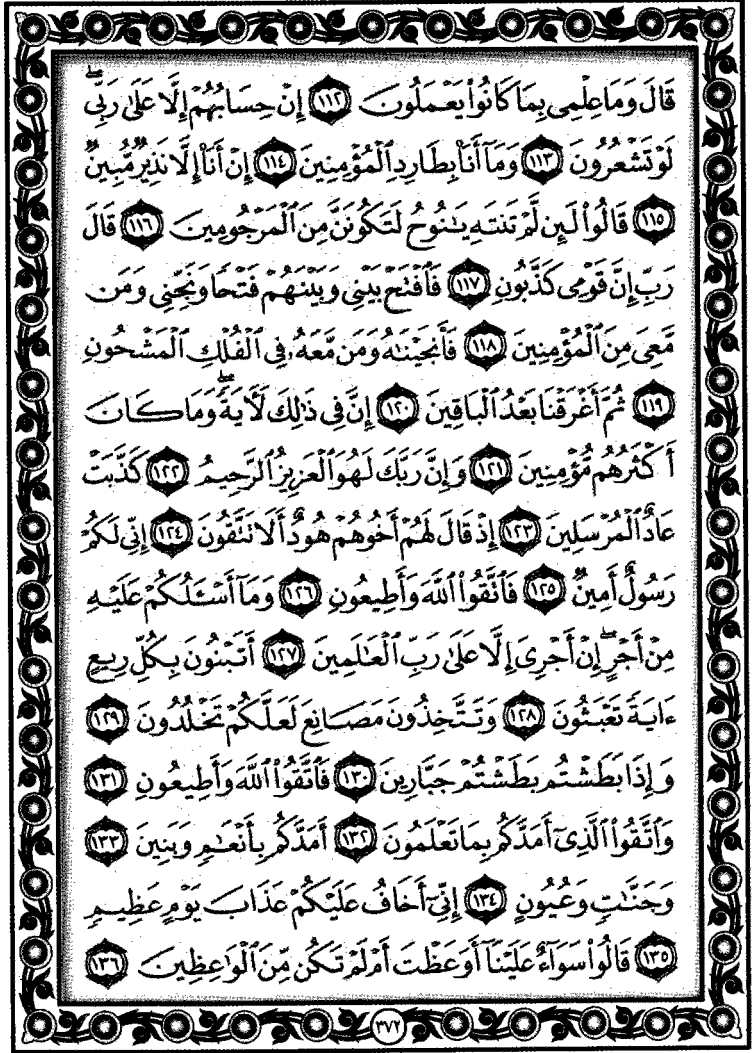 قَالَ وَمَا عِلْمِى بِمَا كَانُوا۟ يَعْمَلُونَ ١١٢ إِنْ حِسَابُهُمْ إِلَّا عَلَىٰ رَبِّى ۖ
لَوْ تَشْعُرُونَ ١١٣ وَمَآ أَنَا۠ بِطَارِدِ ٱلْمُؤْمِنِينَ ١١٤ إِنْ أَنَا۠ إِلَّا نَذِيرٌ مُّبِينٌ
١١٥ قَالُوا۟ لَئِن لَّمْ تَنتَهِ يَـٰنُوحُ لَتَكُونَنَّ مِنَ ٱلْمَرْجُومِينَ ١١٦ قَالَ
رَبِّ إِنَّ قَوْمِى كَذَّبُونِ ١١٧ فَٱفْتَحْ بَيْنِى وَبَيْنَهُمْ فَتْحًا وَنَجِّنِى وَمَن
مَّعِىَ مِنَ ٱلْمُؤْمِنِينَ ١١٨ فَأَنجَيْنَـٰهُ وَمَن مَّعَهُۥ فِى ٱلْفُلْكِ ٱلْمَشْحُونِ
١١٩ ثُمَّ أَغْرَقْنَا بَعْدُ ٱلْبَاقِينَ ١٢٠ إِنَّ فِى ذَٰلِكَ لَـَٔايَةً ۖ وَمَا كَانَ
أَكْثَرُهُم مُّؤْمِنِينَ ١٢١ وَإِنَّ رَبَّكَ لَهُوَ ٱلْعَزِيزُ ٱلرَّحِيمُ ١٢٢ كَذَّبَتْ
عَادٌ ٱلْمُرْسَلِينَ ١٢٣ إِذْ قَالَ لَهُمْ أَخُوهُمْ هُودٌ أَلَا تَتَّقُونَ ١٢٤ إِنِّى لَكُمْ
رَسُولٌ أَمِينٌ ١٢٥ فَٱتَّقُوا۟ ٱللَّهَ وَأَطِيعُونِ ١٢٦ وَمَآ أَسْـَٔلُكُمْ عَلَيْهِ
مِنْ أَجْرٍ ۖ إِنْ أَجْرِىَ إِلَّا عَلَىٰ رَبِّ ٱلْعَـٰلَمِينَ ١٢٧ أَتَبْنُونَ بِكُلِّ رِيعٍ
ءَايَةً تَعْبَثُونَ ١٢٨ وَتَتَّخِذُونَ مَصَانِعَ لَعَلَّكُمْ تَخْلُدُونَ ١٢٩
وَإِذَا بَطَشْتُم بَطَشْتُمْ جَبَّارِينَ ١٣٠ فَٱتَّقُوا۟ ٱللَّهَ وَأَطِيعُونِ ١٣١
وَٱتَّقُوا۟ ٱلَّذِىٓ أَمَدَّكُم بِمَا تَعْلَمُونَ ١٣٢ أَمَدَّكُم بِأَنْعَـٰمٍ وَبَنِينَ ١٣٣
وَجَنَّـٰتٍ وَعُيُونٍ ١٣٤ إِنِّىٓ أَخَافُ عَلَيْكُمْ عَذَابَ يَوْمٍ عَظِيمٍ
١٣٥ قَالُوا۟ سَوَآءٌ عَلَيْنَآ أَوَعَظْتَ أَمْ لَمْ تَكُن مِّنَ ٱلْوَٰعِظِينَ ١٣٦
٣٧٢